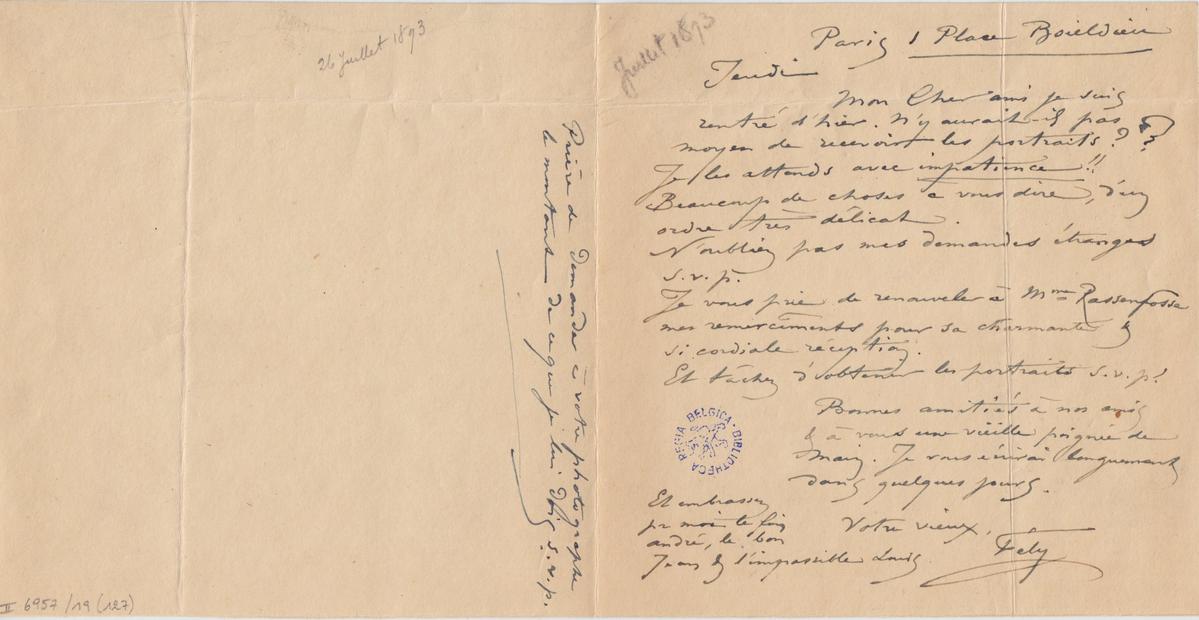 26 Juillet 1893
Juillet 1893
Paris 1 Place Boieldieu
Jeudi
Mon Cher ami je suis
rentré d'hier. N'y aurait-il pas
moyen de recevoir les portraits? ?
Je les attends avec impatience!!
Beaucoup de choses à vous dire, d'un
ordre très délicat.
N'oubliez pas mes demandes étranges
s.v.p.
Je vous prie de renouveler à Mme Rassenfosse
mes remerciments pour sa charmante &
si cordiale réception.
Et tâchez d'obtenir les portraits s.v.p!
Bonnes amitiés à nos amis
& à vous une vieille poignée de
main. Je vous écrirai longuement
dans quelques jours.
Votre vieux,
Fély
Et embrassez
pr moi le fin
andré, le bon
Jean & l'impassible Louis
Prière de demander à votre photographe
le montant de ce que je lui dois s.v.p.
BIBLIOTHECA REGIA BELGICA
II 6957/19 (127)